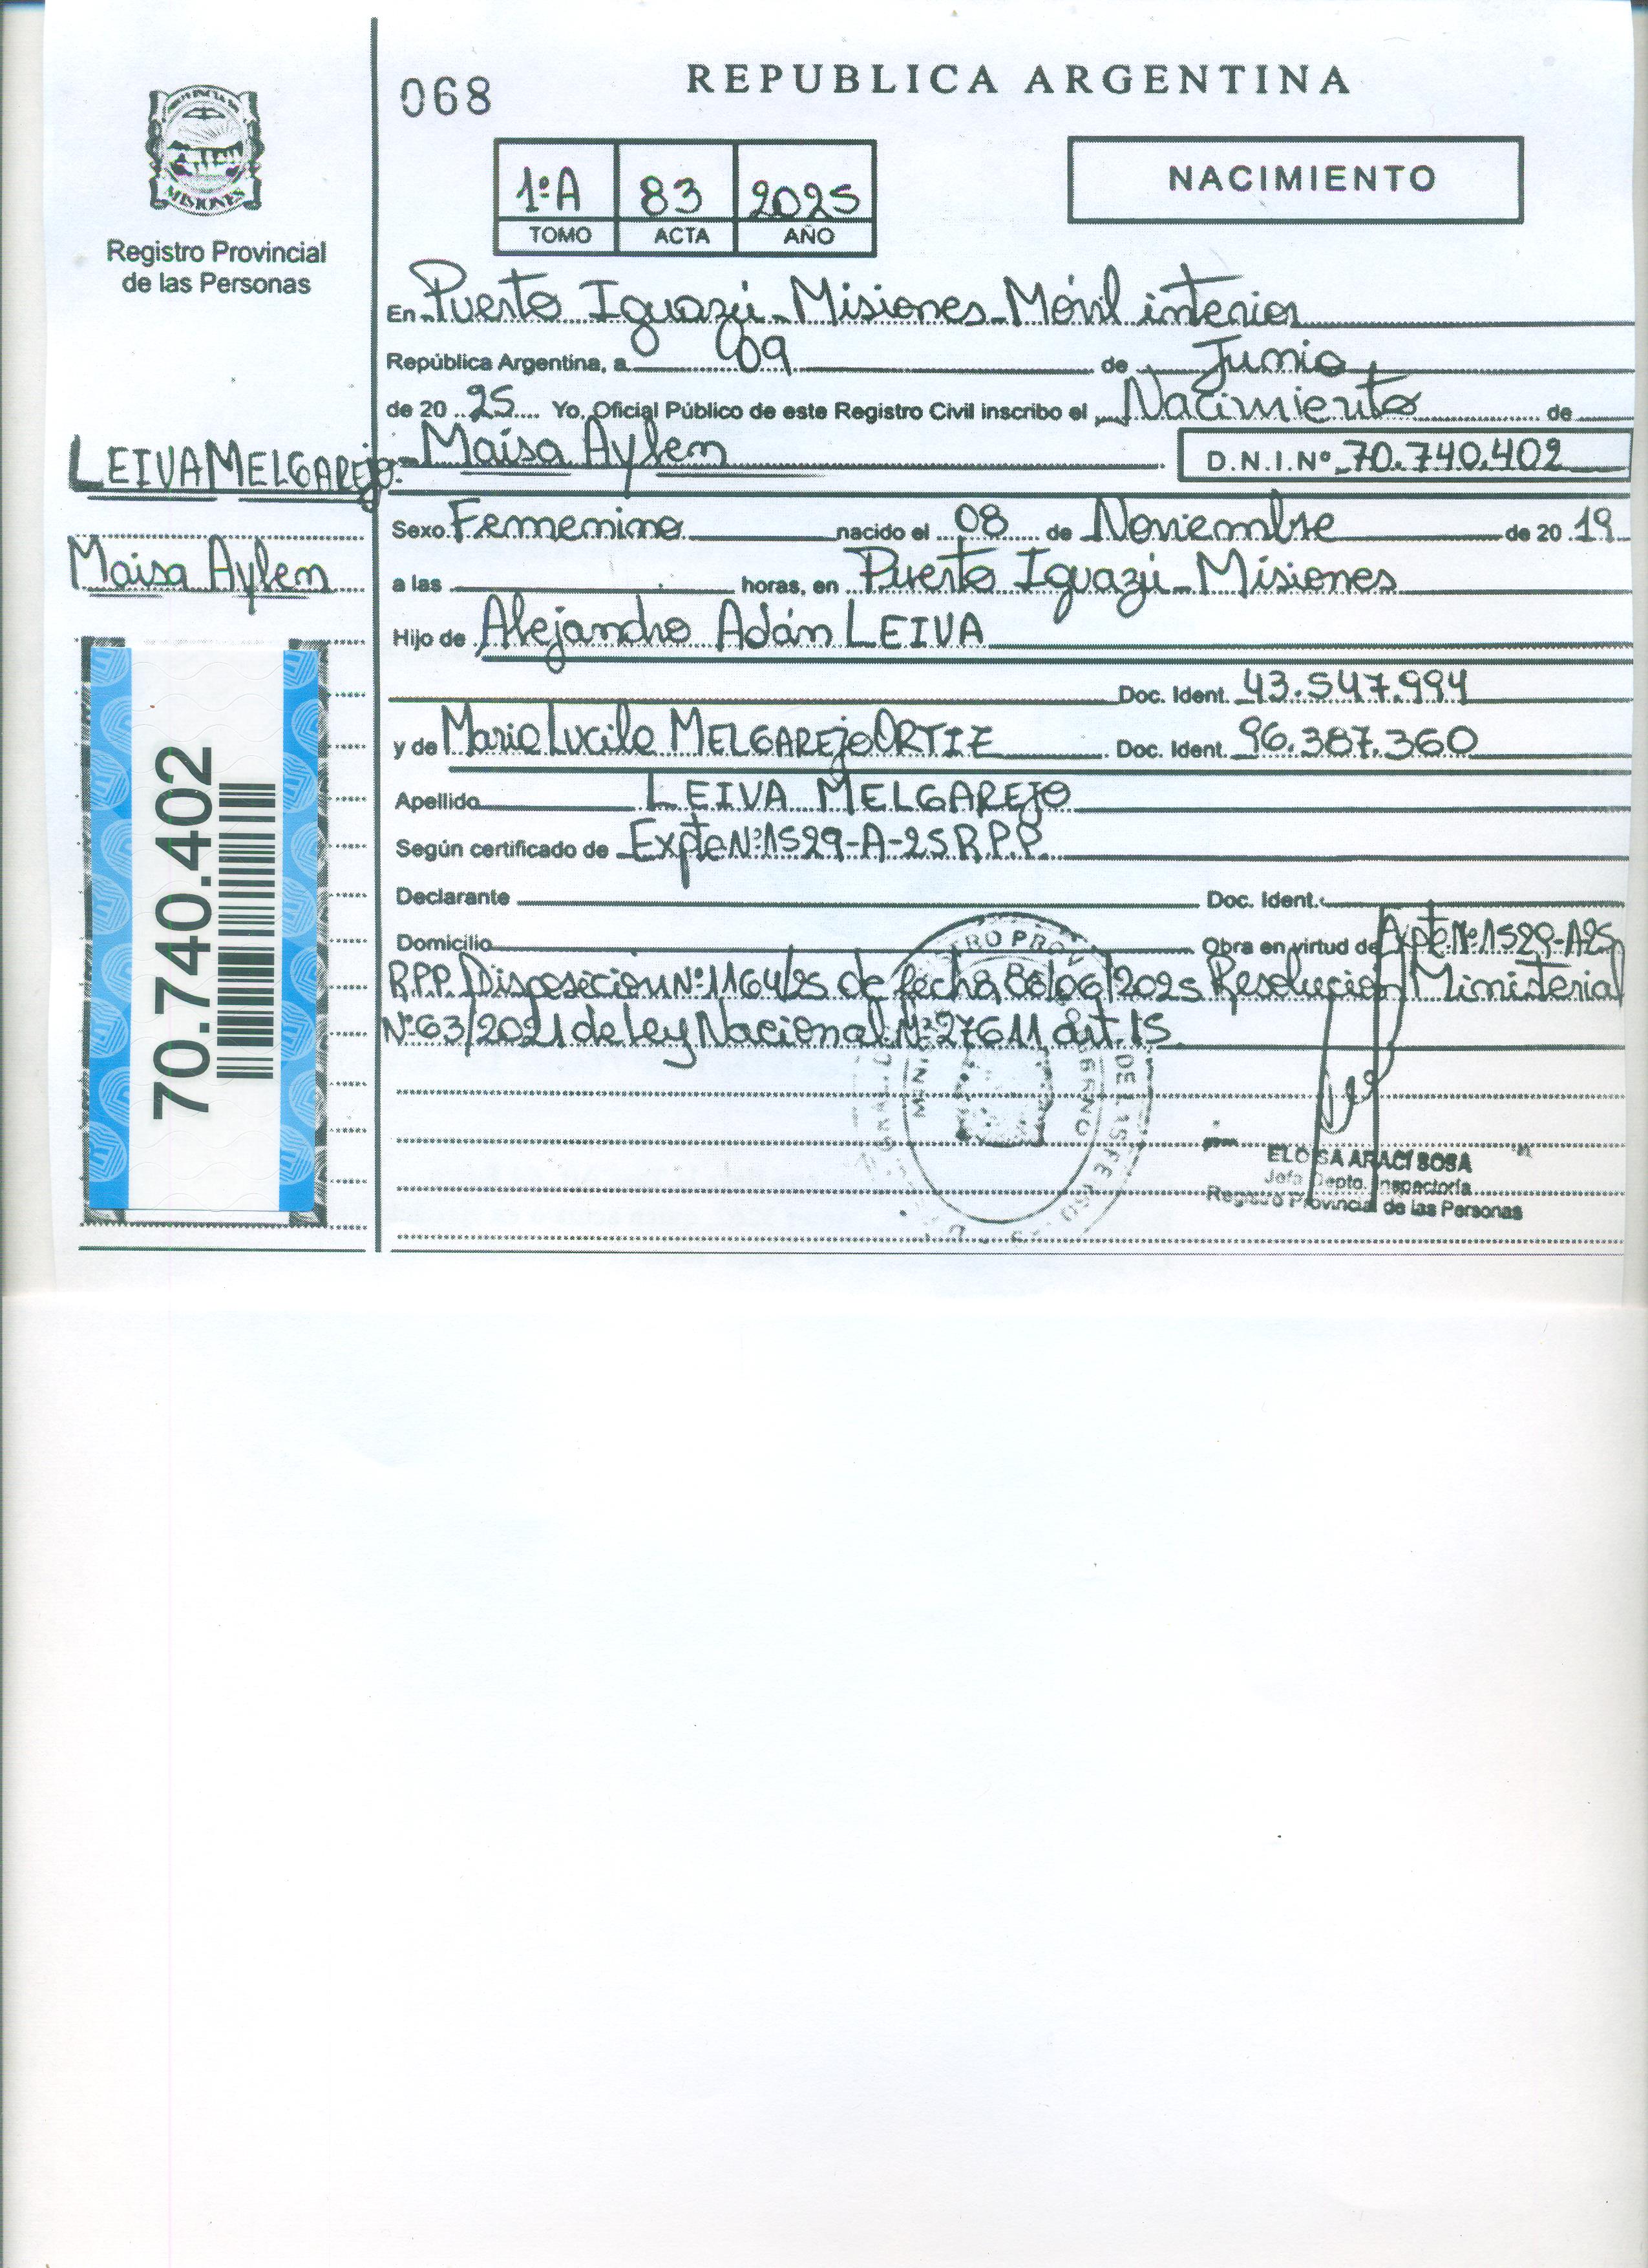 REPUBLICA ARGENTINA
068
MISIONES
Registro Provincial
de las Personas
1ºA 83 2025
TOMO ACTA AÑO
NACIMIENTO
En Puerto Iguazú - Misiones - Móvil interior
República Argentina, a 09 de Junio
de 20 25 Yo, Oficial Público de este Registro Civil inscribo el Nacimiento de
LEIVA MELGAREJO - Maisa Aylem D.N.I.Nº 70.740.402
Maisa Aylem
Sexo Femenino nacido el 08 de Noviembre de 20 19
a las horas, en Puerto Iguazú - Misiones
Hijo de Alejandro Adán LEIVA
Doc. Ident. 43.547.994
y de Maria Lucila MELGAREJO ORTIZ Doc. Ident. 96.387.360
Apellido LEIVA MELGAREJO
Según certificado de Expte Nº:1529-A-25 R.P.P.
Declarante Doc. Ident.
Domicilio Obra en virtud de Expte Nº:1529-A-25
R.P.P. Disposicion Nº:1164/25 de fecha 06/2025 Resolución Ministerial
Nº:63/2021 de Ley Nacional Nº:27611 art. 15
70.740.402
ELOISA ARACI SOSA
Jefa Depto. Inspectoría
Registro Provincial de las Personas